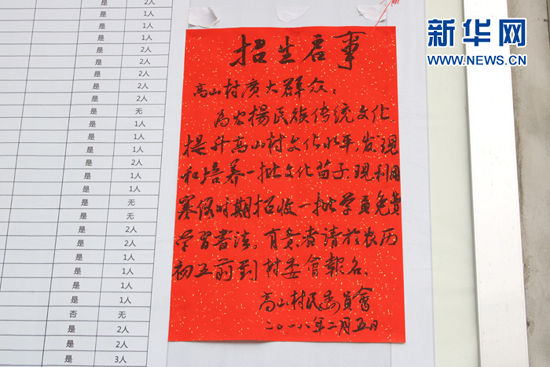 新华网
WWW.NEWS.CN
招生启事
高山村广大群众：
为宏揚民族传统文化，
提升高山村文化水平，发现
和培养一批文化苗子，现利用
寒假时期招收一批学员免费
学習書法。有意者请於农历
初五前到村委會報名。
高山村民委員會
二〇一八年二月五日
是 2人
是 1人
是 1人
是 1人
是 1人
是 2人
是 2人
是 2人
是 无
是 1人
是 1人
是 1人
是 1人
是 1人
是 无
是 无
是 2人
是 1人
是 1人
否 无
是 2人
是 2人
是 3人